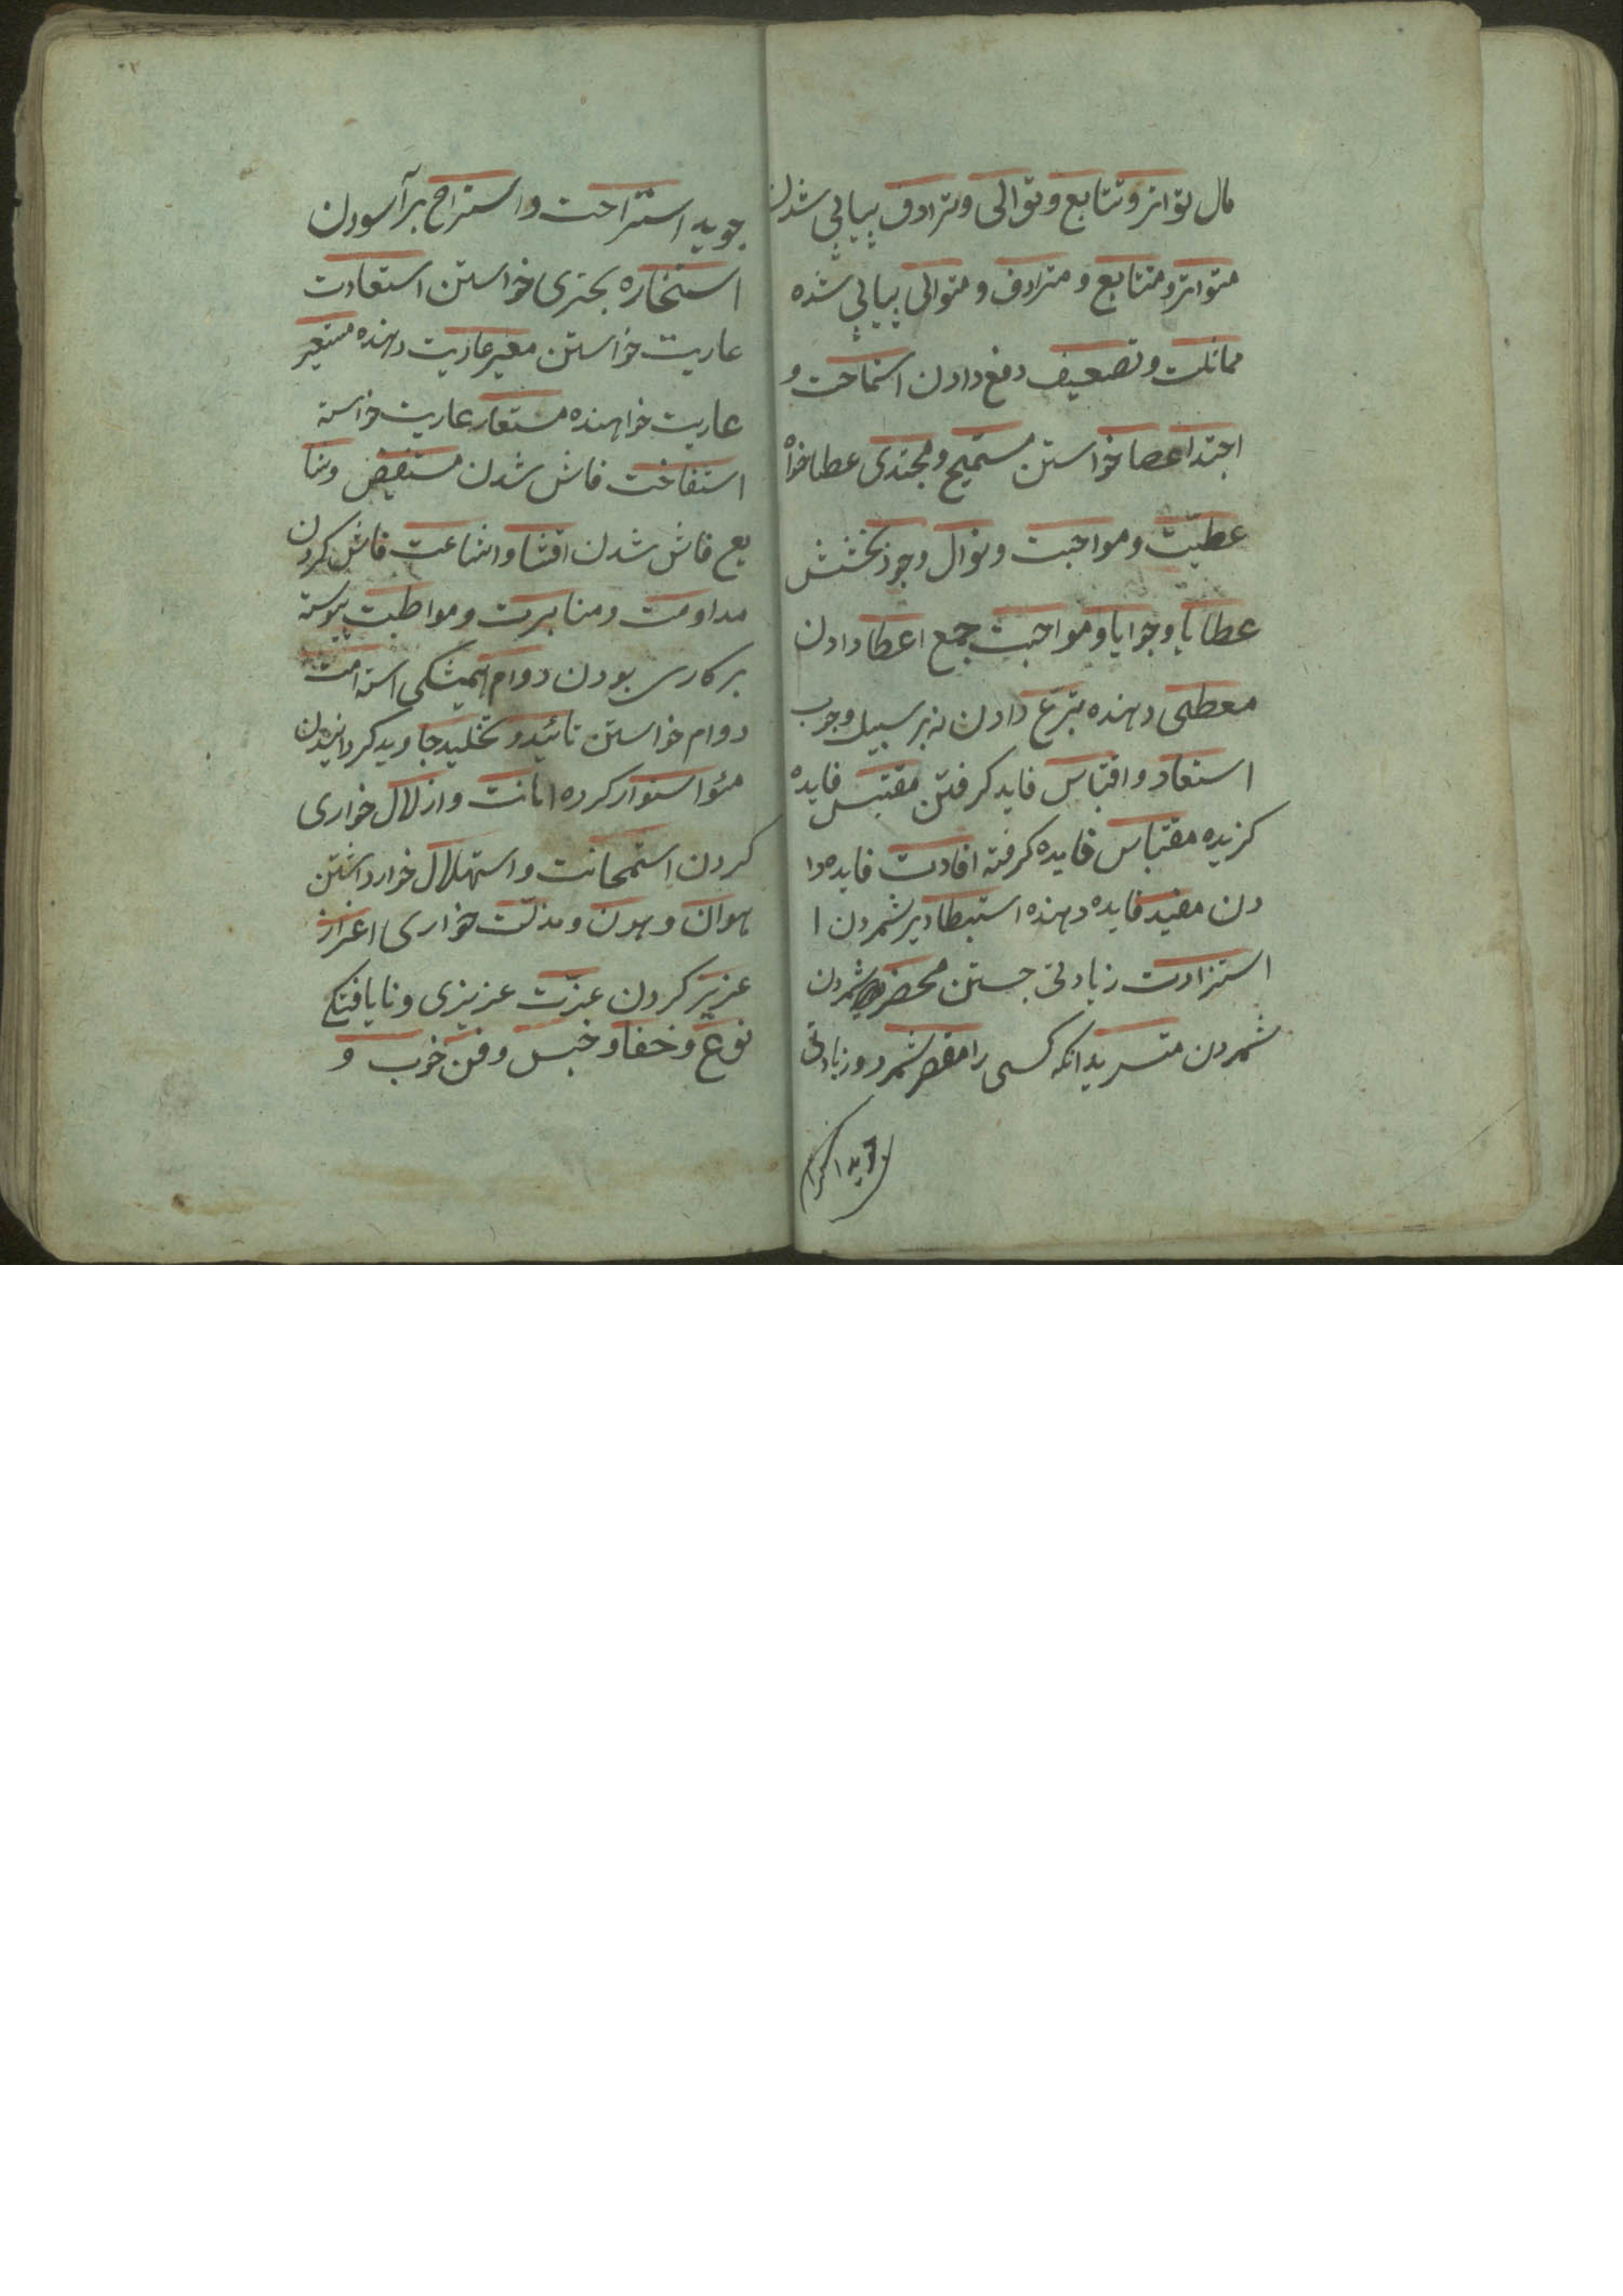 مال تواتر و تتابع و توالی و ترادف پیاپی شدن
متواتر و متتابع و مترادف و متوالی پیاپی شده
مماثلت و تضعیف دفع دادن استماحت و
اجتدا عطا خواستن مستمیح و مجتدی عطا خواه
عطیّت و مواهبت و نوال و جود بخشش
عطایا و جوایا و مواهبت جمع اعطا دادن
معطی دهنده تبرّع دادن نه بر سبیل وجوب
استفاد و اقتباس فایده کرفتن مقتبس فایده
کزیده مقتباس فایده کرفته افادت فایده دا
دن مفید فایده دهنده استبطا دیر شمردن ا
استزادت زیادتی جستن شمردن
شمردن متسرید انکه کسی را مقصر شمرد و زیادتی
جوید استراحت و استراح برآسودن
استخاره بحتری خواستن استعادت
عاریت خواستن معیر عاریت دهنده مستعیر
عاریت خواهنده مستعار عاریت خواسته
استفاخت فاش شدن مستفیض و شا
یع فاش شدن افشا و اشاعت فاش کردن
مداومت و مثابرت و مواظبت پیوسته
بر کاری بودن دوام همیشکی استدامت
دوام خواستن تائید و تخلید جاوید کردانیدن
مؤا استوار کرده اهانت و ازلال خواری
کردن استمحانت و استهلال خوار داشتن
هوان و هون و مذلّت خواری اعزاز
عزیز کردن عزّت عزیزی و نایافتکی
نوع و خفا و خبس و فن خوب و